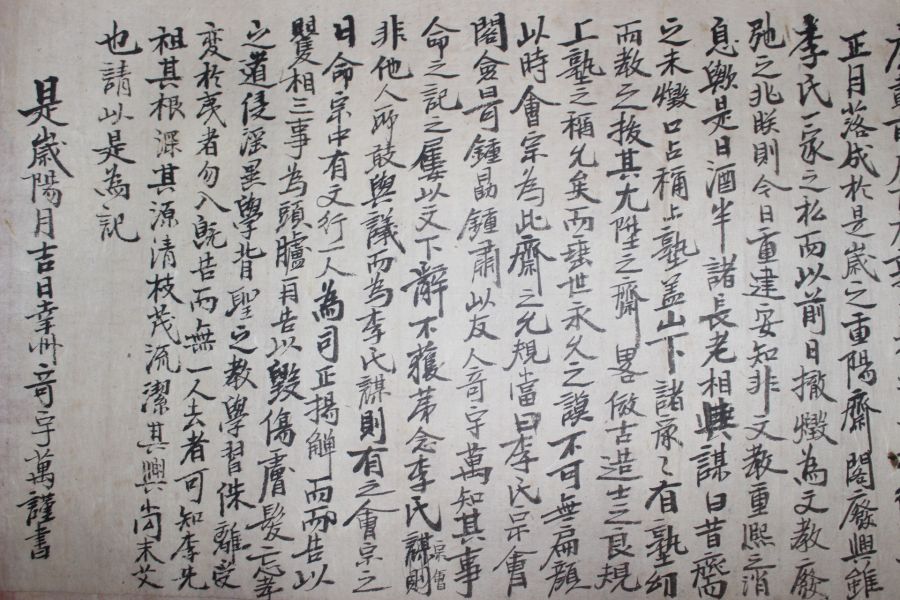 正月落成於是歲之重陽齋閣廢興雖
李氏一家之私而以前日撤燬為文敎廢
弛之兆眹則今日重建安知非文敎重熙之消
息歟是日酒半諸長老相與謀曰昔齋
之未燬口占稱上塾盖山下諸家之有塾幼
而敎之掞其尤陞之齋畧倣古造士之良規
上塾之稱允矣而垂世永久之謨不可無扁顔
以時會宗為此齋之元規當曰李氏宗會
閤僉曰可鍾勗鍾肅以友人奇宇萬知其事
命之記之屢以文下辭不獲苐念李氏宗會
非他人所敢與議而為李氏謀則有之會宗之
日命宗中有文行一人為司正揚觶而告以
矍相三事為頭臚月告以毁傷膚髮忘孝
之道侵淫異學背聖之敎學習侏離受
変於夷者勿入旣告而無一人去者可知李先
祖其根深其源清枝茂流潔其興尚未艾
也請以是為記
是歲陽月吉日幸州奇宇萬謹書